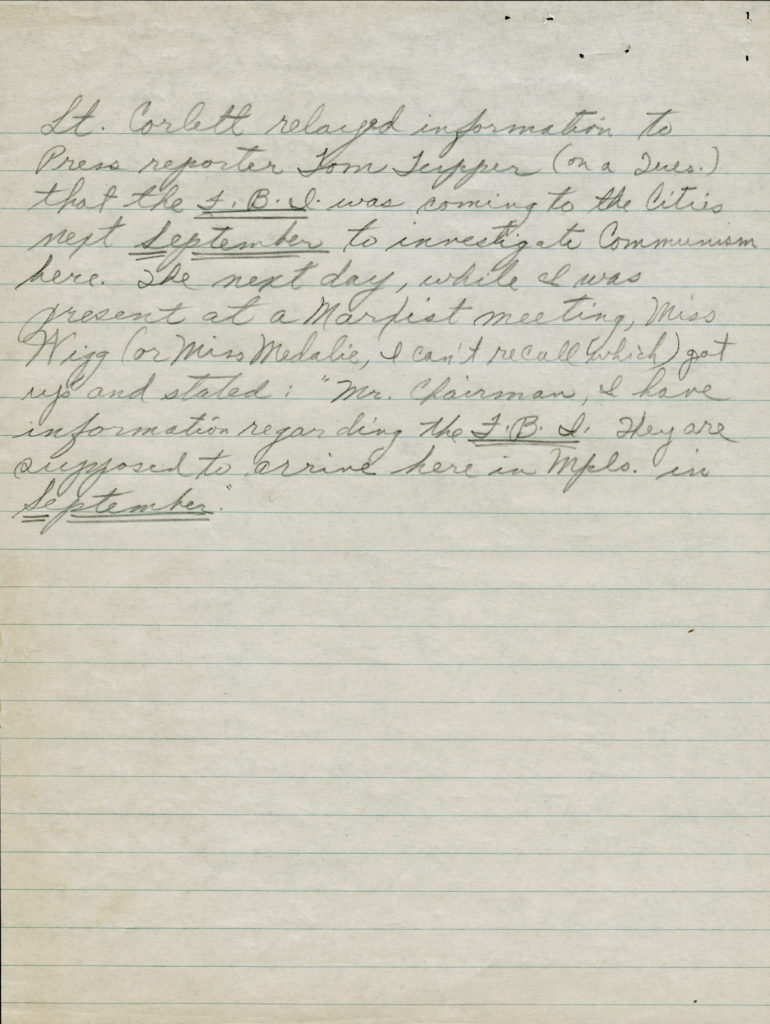 Lt. Corlett relayed information to
Press reporter Tom Tupper (on a Tues.)
that the F. B. I. was coming to the Cities
next September to investigate Communism
here. The next day, while I was
present at a Marxist meeting, Miss
Wigg (or Miss Medalie, I can't recall which) got
up and stated: "Mr. Chairman, I have
information regarding the F. B. I. They are
supposed to arrive here in Mpls. in
September."